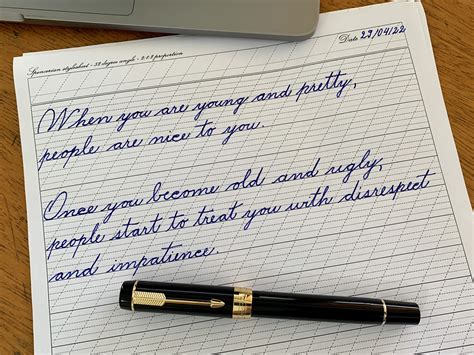 Spencerian stylesheet - 52 degree angle - 2:1:2 proportion
Date 29/04/22
When you are young and pretty,
people are nice to you.
Once you become old and ugly,
people start to treat you with disrespect
and impatience.